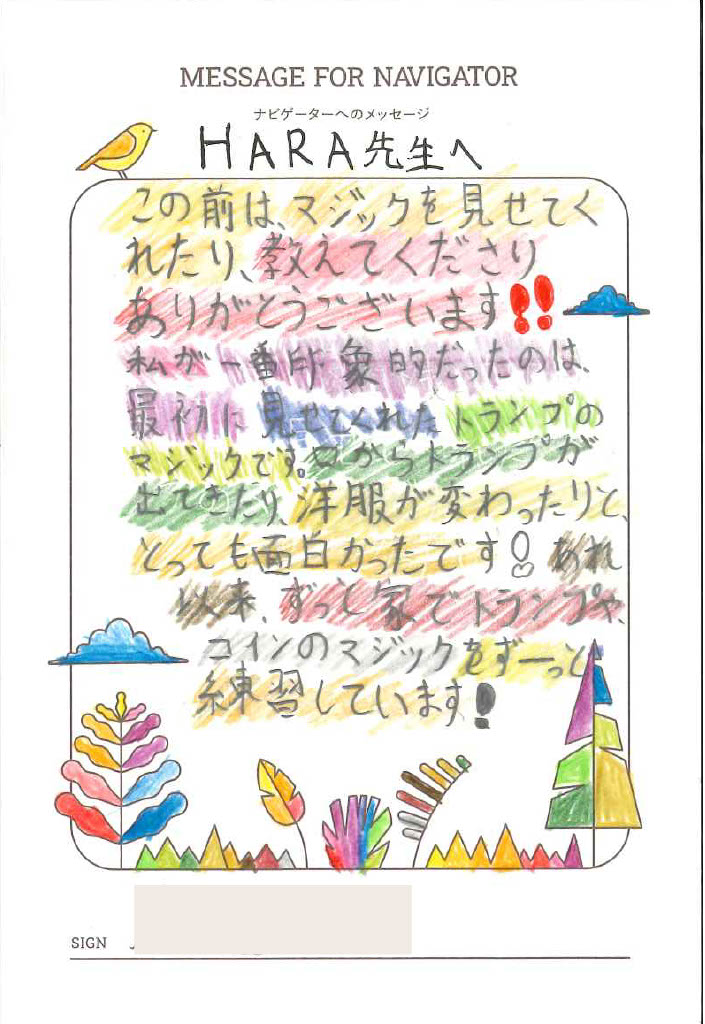 MESSAGE FOR NAVIGATOR
ナビゲーターへのメッセージ
HARA先生へ
この前は、マジックを見せてく
れたり、教えてくださり
ありがとうございます!!
私が一番印象的だったのは、
最初に見せてくれたトランプの
マジックです。口からトランプが
出てきたり、洋服が変わったりと、
とっても面白かったです!あれ
以来、ずっと家でトランプや、
コインのマジックをずーっと
練習しています!
SIGN